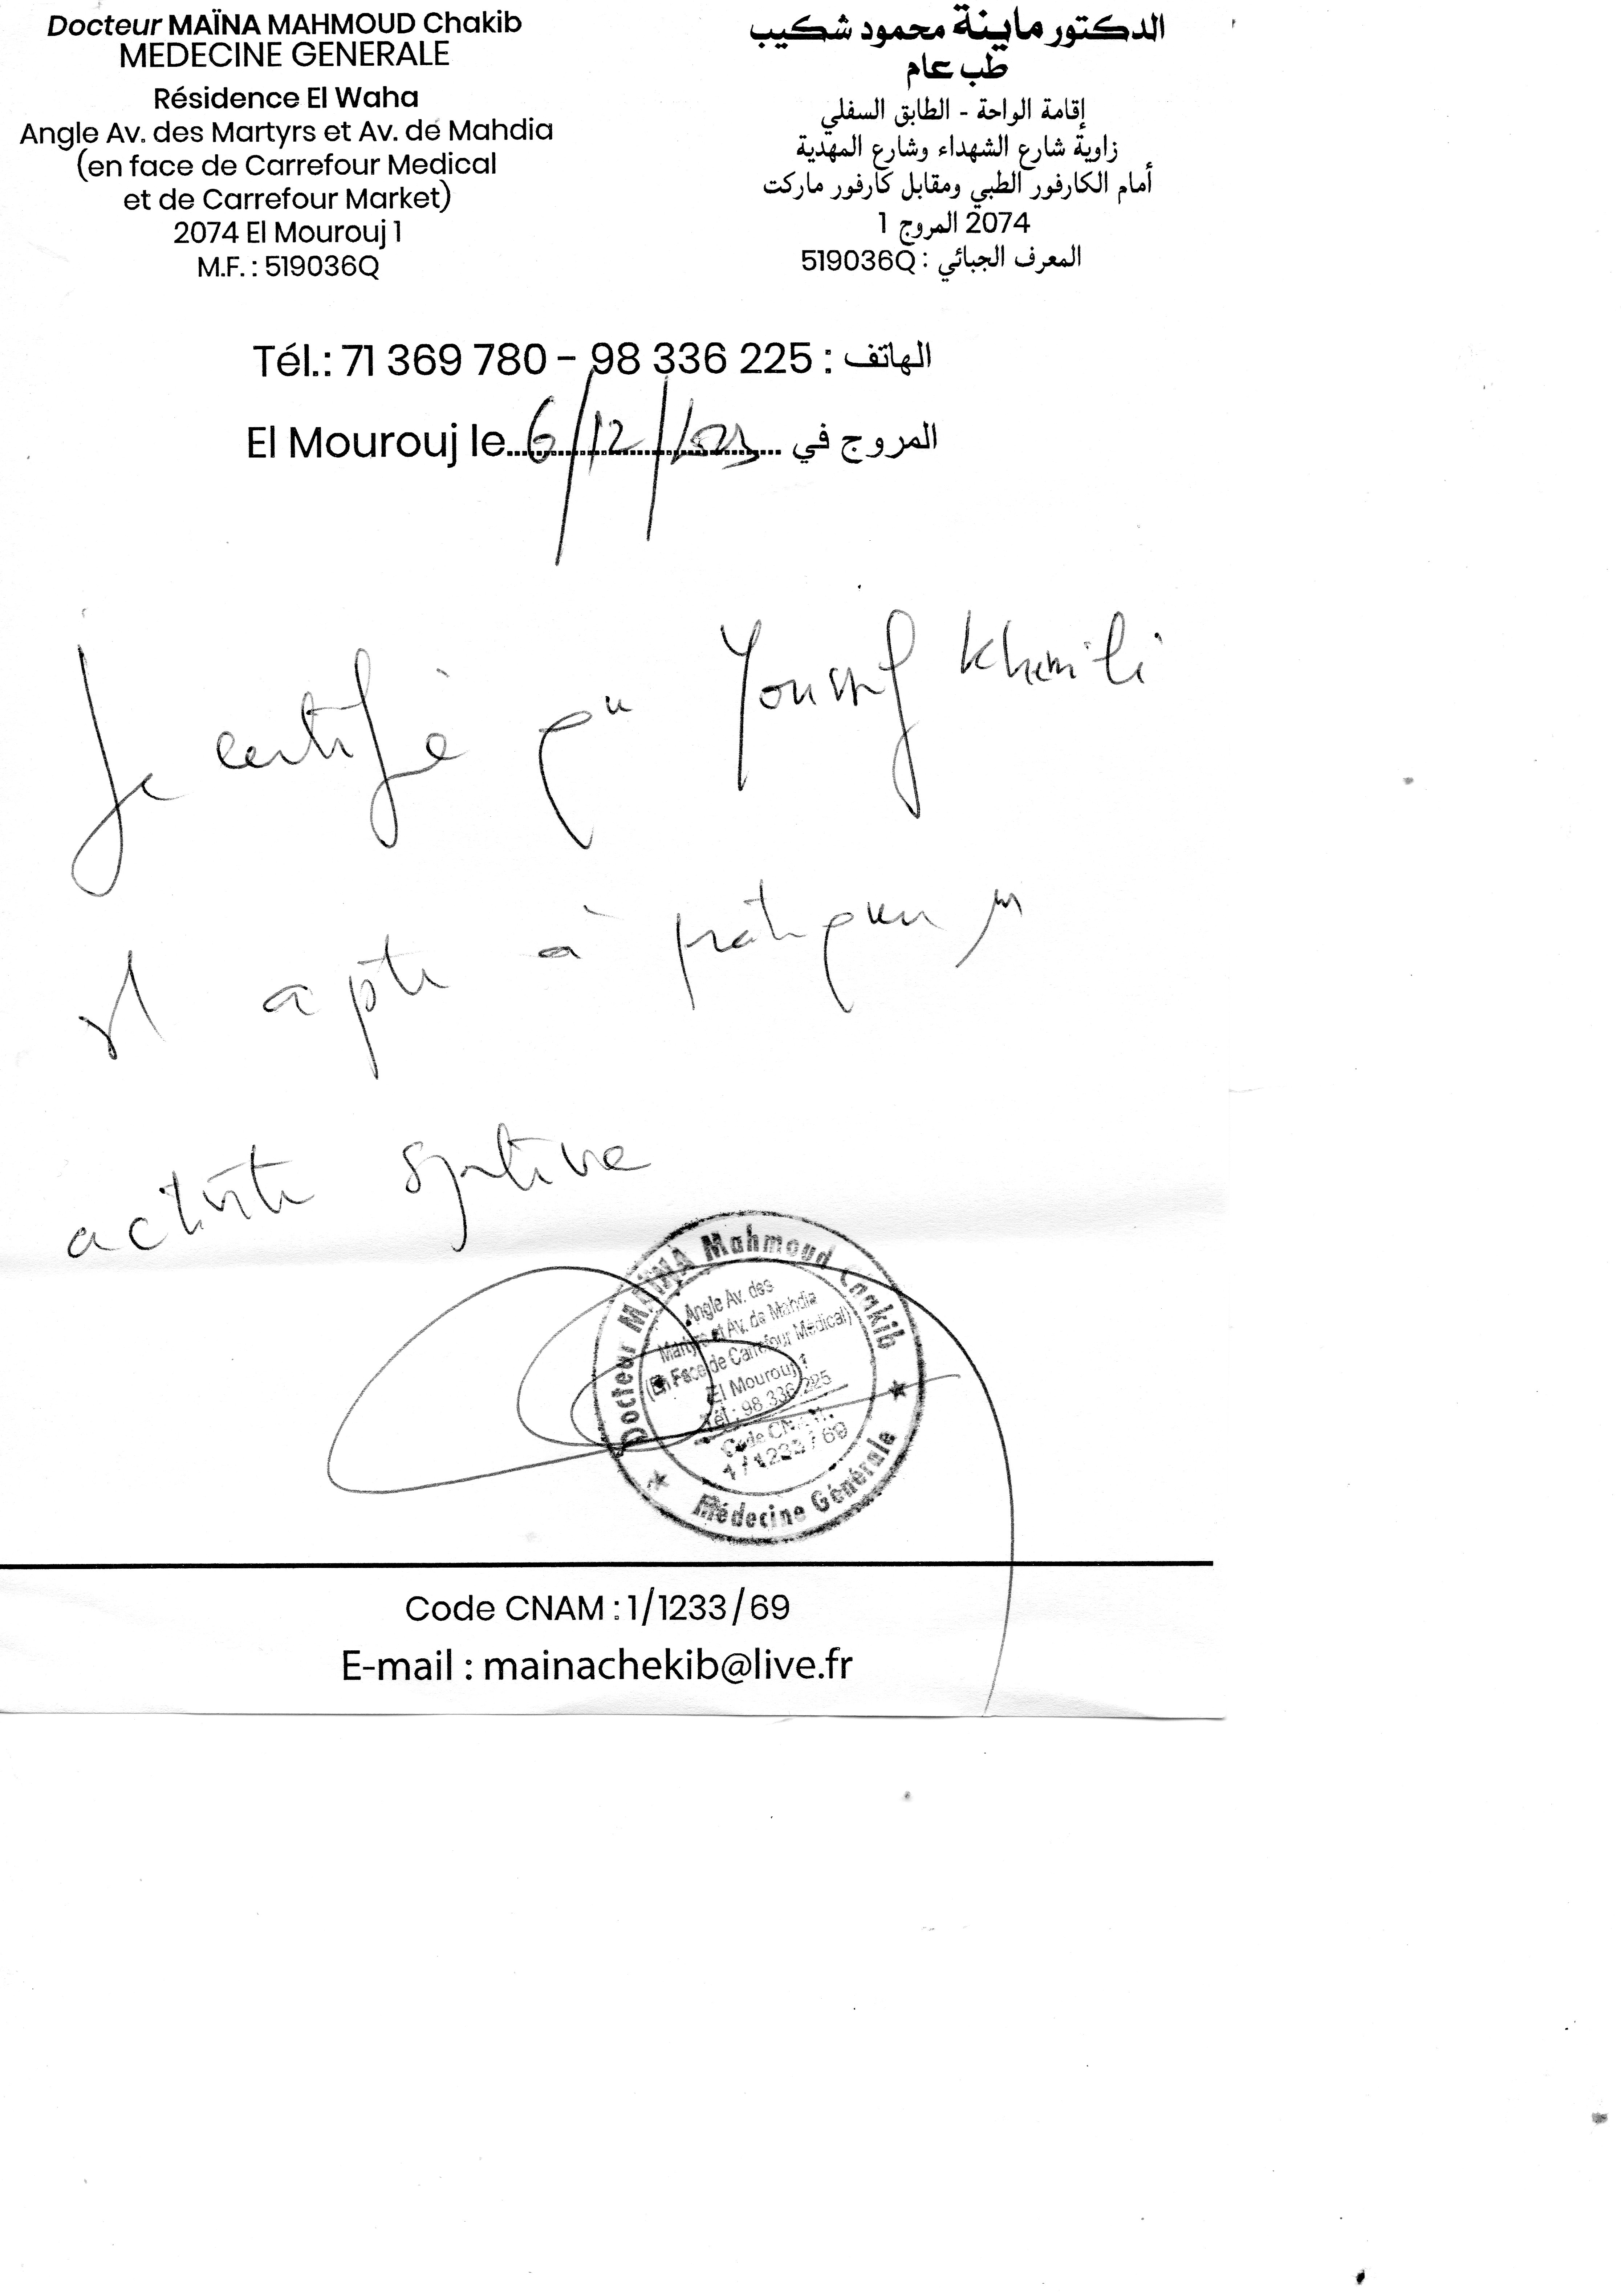 Docteur MAÏNA MAHMOUD Chakib
MEDECINE GENERALE
Résidence El Waha
Angle Av. des Martyrs et Av. de Mahdia
(en face de Carrefour Medical
et de Carrefour Market)
2074 El Mourouj 1
M.F. : 519036Q
الدكتور ماينة محمود شكيب
طب عام
إقامة الواحة - الطابق السفلي
زاوية شارع الشهداء وشارع المهدية
أمام الكارفور الطبي ومقابل كارفور ماركت
2074 المروج 1
المعرف الجبائي : 519036Q
Tél.: 71 369 780 - 98 336 225 : الهاتف
El Mourouj le 6/12/ المروج في
Je certifie qu Youssef Khemili
apte à pratiquer
activité sportive
Docteur MAÏNA Mahmoud Chakib
Angle Av. des
Martyrs et Av. de Mahdia
(En Face de Carrefour Médical)
El Mourouj 1
Tél : 98 336 225
Code CNAM
1/1233/69
Médecine Générale
Code CNAM : 1/1233/69
E-mail : mainachekib@live.fr